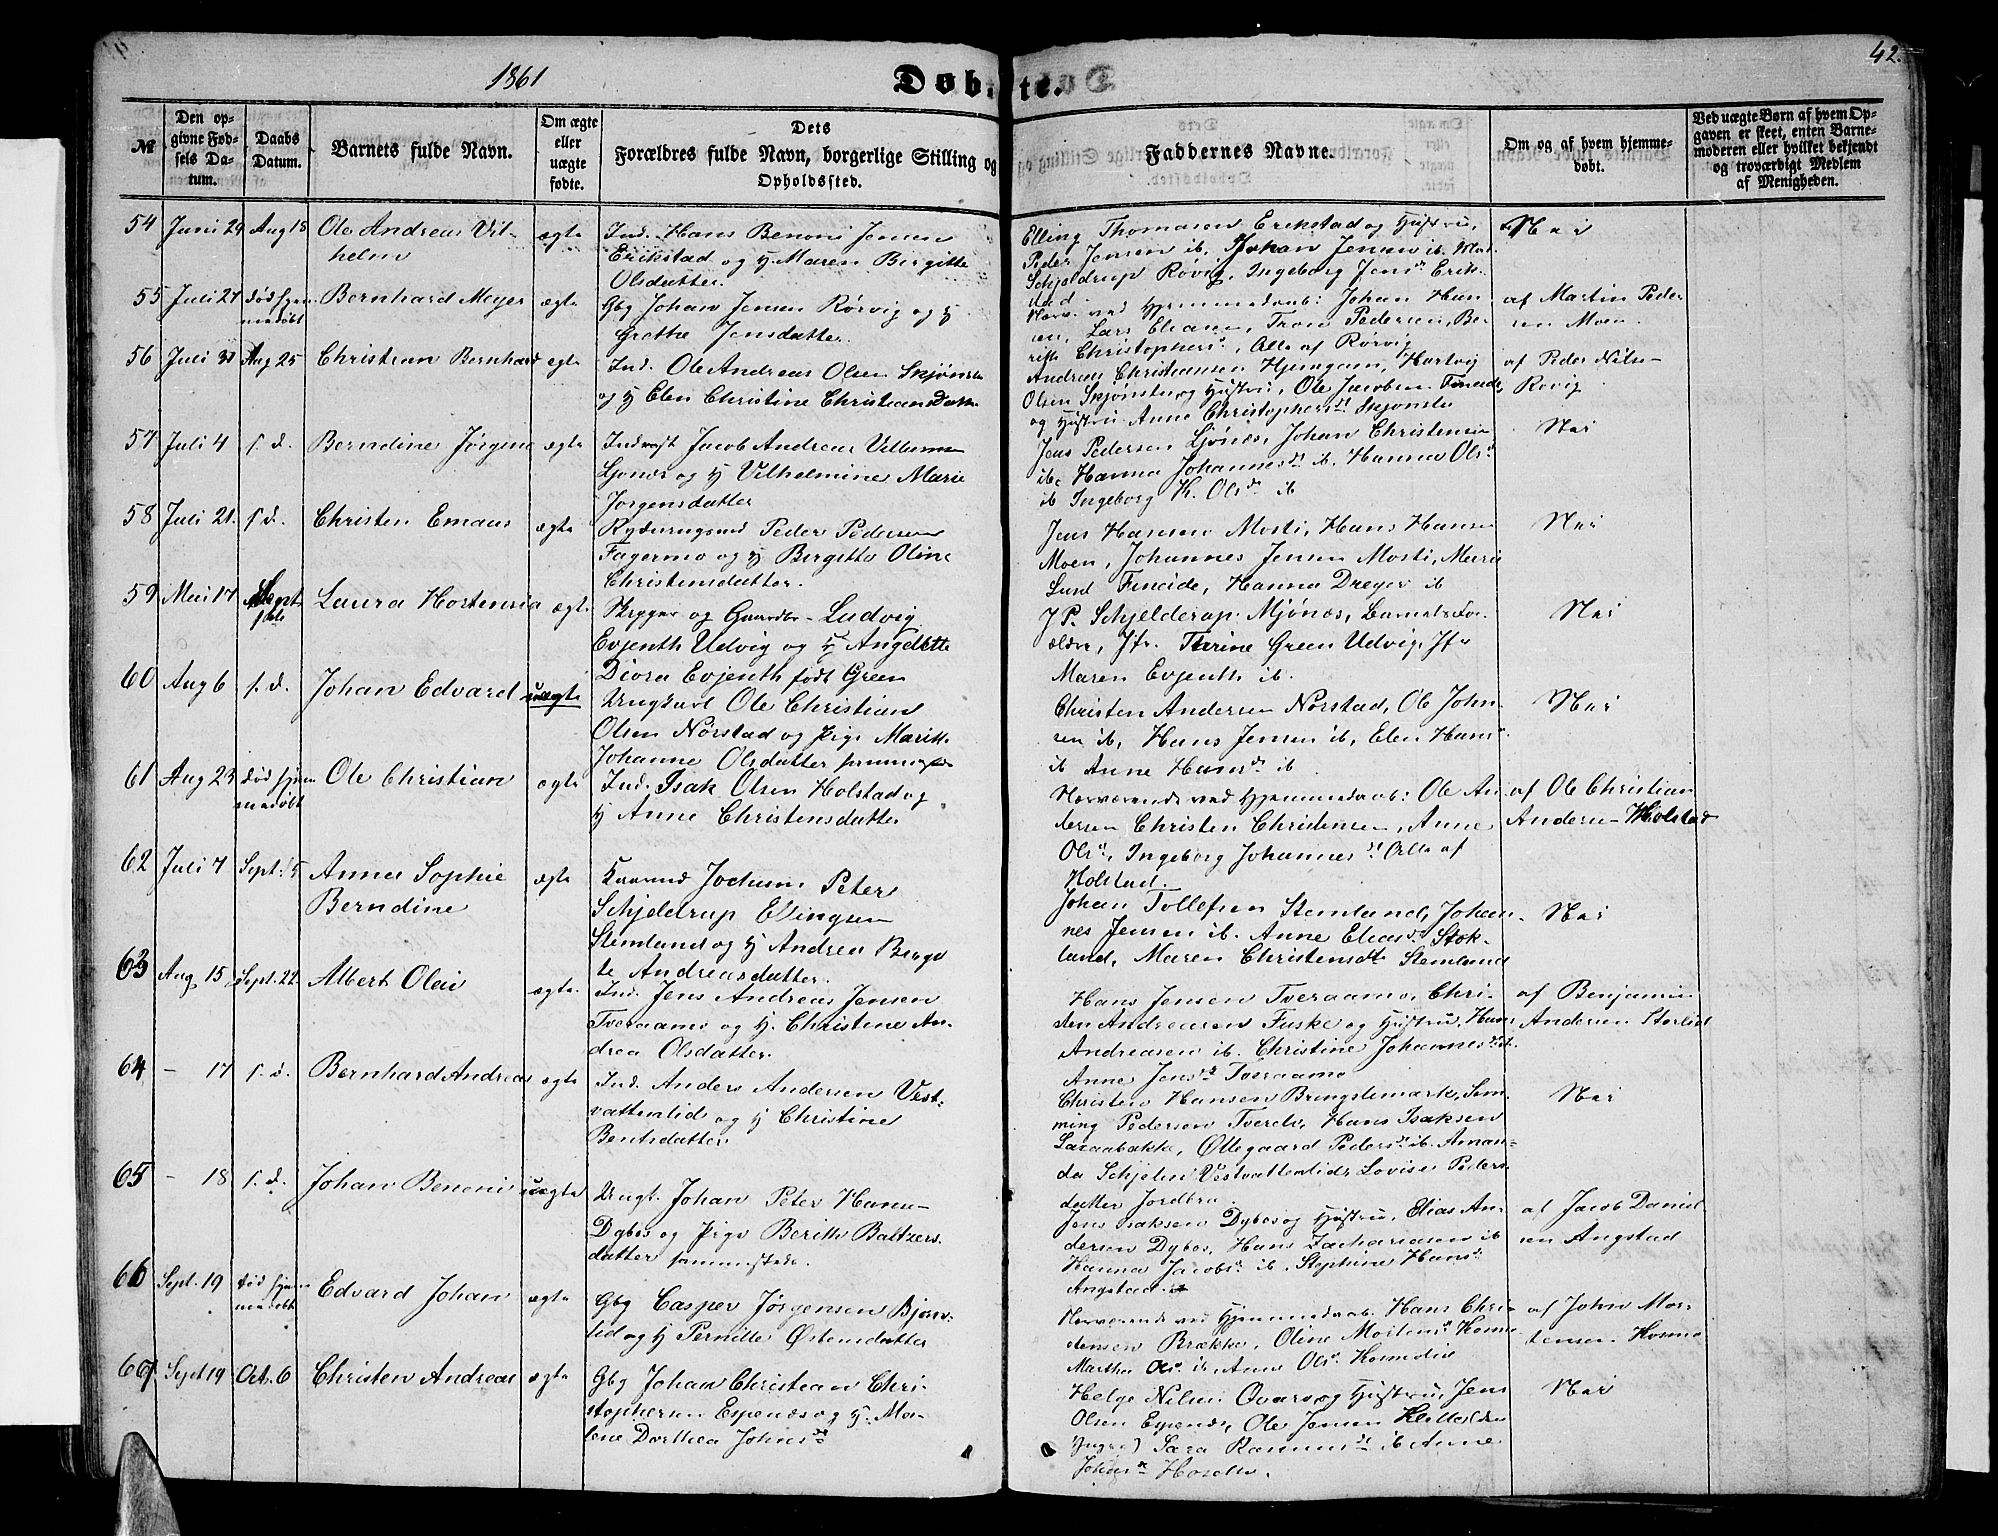 1861
Døbte.
42.
№
Den opgivne Fødsels Datum.
Daabs Datum.
Barnets fulde Navn.
Om ægte eller uægte fødte.
Dets Forældres fulde Navn, borgerlige Stilling og Opholdssted.
Faddernes Navne.
Om og af hvem hjemmedøbt.
Ved uægte Børn af hvem Opgaven er skeet, enten Barnemoderen eller hvilket bekjendt og troværdigt Medlem af Menigheden.
54 Juni 29 Aug 18 Ole Andreas Vilhelm ægte
Ind. Hans Benoni Jensen
Erikstad og H Maren Birgitte
Olsdatter.
Elling Thomasen Erikstad og Hustru,
Peder Jensen ib. Johan Jensen ib.
Schjeldrup Røvig, Ingeborg Jens dr Erikstad
Nei
55 Juli 27 død hjemmedøbt Bernhard Meyer ægte
Gbg Johan Jensen Rørvig og H
Grethe Jensdatter.
Nærv. ved Hjemmedaab: Johan Hansen,
Lars Eliasen, Tron Pedersen, Berith
Christophers dr, Alle af Rørvig
af Martin Pedersen Moen.
56 Juli 31 Aug 25 Christian Bernhard ægte
Ind. Ole Andreas Olsen Skjønstu
og H Elen Christine Christiansdatter
Andreas Christiansen Hjemgam, Hartvig
Olsen Skjønstu og Hustru, Ole Jacobsen Fineide,
og Hustru Anne Christophers dr Skjønstu
af Peder Nilsen Røvig.
57 Juli 4 s. d. Berndine Jørgine ægte
Jacob Andreas Villumsen
Ljønes og H Vilhelmine Marie
Jørgensdatter
Jens Pedersen Ljønes, Johan Christensen
ib. Hanna Johannes dr ib. Hanna Ols dr
ib Ingeborg K. Ols dr ib
Nei
58 Juli 21. s. d. Christen Emaus ægte
Rydningsmd Peder Pedersen
Fagermo og H Birgitte Oline
Christensdatter.
Jens Hansen Mosti, Hans Hansen
Moen, Johannes Jensen Mosti, Marie
Lund Fineide, Hanna Dreyer ib
Nei
59 Mai 17 Sept 1ste Laura Hortensia ægte
Skipper og Gaardbr. Ludvig
Evjenth Udvig og H Angelette
Diora Evjenth født Green
J P. Schjelderup Mjønes, Barnets Forældre,
Jfr. Thrine Green Udvig, Jfr
Maren Evjenth ib.
Nei
60 Aug 6 s. d. Johan Edvard uægte
Ungkarl Ole Christian
Olsen Norstad og Pige Marith
Johanne Olsdatter sammested
Christen Andersen Nørstad, Ole Johnsen
ib, Hans Jensen ib, Elen Hans dr
ib Anne Hans dr ib.
Nei
61 Aug 23 død hjemmedøbt Ole Christian ægte
Ind. Isak Olsen Holstad og
H Anne Christensdatter
Nærværende ved Hjemmedaab: Ole Andersen
Christen Christensen, Anne
Ols dr, Ingeborg Johannes dr Alle af
Holstad.
af Ole Christian Andersen Holstad
62 Juli 7 Sept. 15 Anna Sophie Berndine ægte
Jochum Peter
Schjeldrup Ellingsen
Stemland og H Andrea Birgitte
Andreasdatter.
Johan Tollefsen Stemland, Johannes
Jensen ib. Anne Elias dr Stokland,
Maren Christens dr Stemland
Nei
63 Aug 15 Sept. 22. Albert Olai ægte
Ind. Jens Andreas Jensen
Tveraamo og H. Christine Andrea
Olsdatter.
Hans Jensen Tveraamo, Christen
Andreasen Fuske og Hustru, Hans
Andreasen ib. Christine Johannes dr
Anne Jens dr Tveraamo
af Benjamin Andersen Storlid
64 - 17 s. d. Bernhard Andreas ægte
Ind. Anders Andersen Vestvattenlid
og H Christine
Bentsdatter
Christen Hansen Bringslimark, Semming
Pedersen Tverelv, Hans Isaksen
Laxaabakke, Øllegaard Peders dr ib. Amanda
Schjelin Vestvattenlid, Lovise Pedersdatter
Jordbru.
Nei
65 - 18 s. d. Johan Benoni uægte
Ungk. Johan Peter Hansen
Dybos og Pige Berith Baltzersdatter
sammesteds.
Jens Isaksen Dybos og Hustru, Elias Andersen
Dybos, Hans Zachariasen ib
Hanna Jacobs dr ib. Stephine Hans dr
Angstad.
af Jacob Danielsen Angstad
66 Sept. 19 død hjemmedøbt Edvard Johan ægte
Gbg Casper Jørgensen Bjørnlid
og H Pernille Østensdatter
Nærværende ved Hjemmedaab. Hans Christensen
Brække, Oline Mortens dr
Martha Ols dr ib Anne Ols dr
af John Mortensen
67 Sept 19 Oct. 6 Christen Andreas ægte
Gbg Johan Christian Christophersen
Espenes og H. Malene
Dorthea Johns dr
Helge Nilsen Qvarv og Hustru, Jens
Olsen Espenes, Ole Jensen Kletten (den
Yngre) Sara Rasmus dr ib Anne
Johans dr
Nei